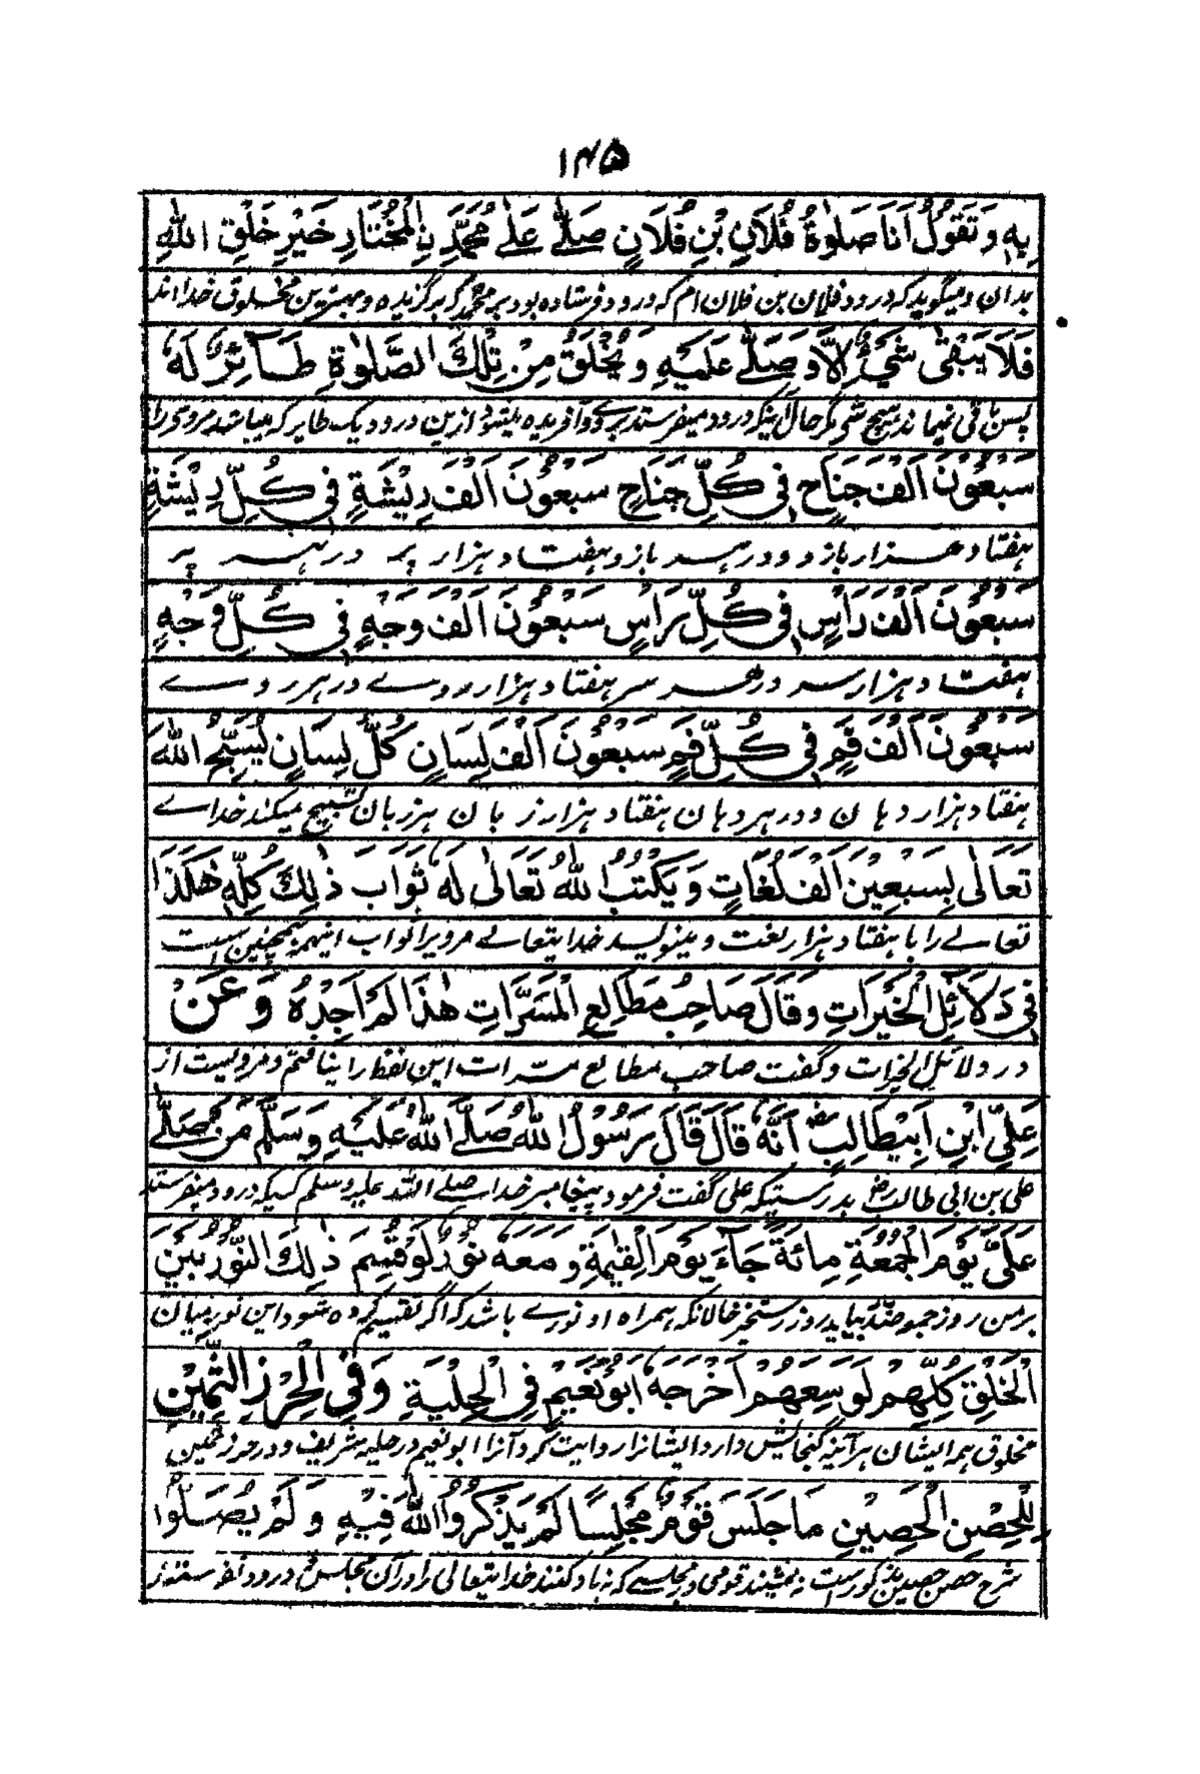 ۱۴۵
بِهٖ وَتَقُوْلُ اَنَا صَلٰوةُ فُلَانِ بْنِ فُلَانٍ صَلّٰى عَلٰى مُحَمَّدِ نِ الْمُخْتَارِ خَيْرِ خَلْقِ اللهِ
بدان ومیگوید که درود فلان بن فلان ام که درود فرستاده بود بر محمد که برگزیده و بهترین مخلوق خدا اند
فَلَا يَبْقٰى شَيْءٌ اِلَّا وَصَلّٰى عَلَيْهِ وَيُخْلَقُ مِنْ تِلْكَ الصَّلٰوةِ طَآئِرٌ لَهٗ
پس باقی نمیماند هیچ شی مگر حال آنکه درود میفرستد بر وی وآفریده میشود ازین درود یک طایر که میباشد مر وی را
سَبْعُوْنَ اَلْفَ جَنَاحٍ فِيْ كُلِّ جَنَاحٍ سَبْعُوْنَ اَلْفَ رِيْشَةٍ فِيْ كُلِّ رِيْشَةٍ
هفتاد هزار بازو ودر هر بازو هفتاد هزار پر در هر پر
سَبْعُوْنَ اَلْفَ رَاْسٍ فِيْ كُلِّ رَاْسٍ سَبْعُوْنَ اَلْفَ وَجْهٍ فِيْ كُلِّ وَجْهٍ
هفتاد هزار سر در هر سر هفتاد هزار روے در هر روے
سَبْعُوْنَ اَلْفَ فَمٍ فِيْ كُلِّ فَمٍ سَبْعُوْنَ اَلْفَ لِسَانٍ كُلُّ لِسَانٍ يُسَبِّحُ اللهَ
هفتاد هزار دهان ودر هر دهان هفتاد هزار زبان هر زبان تسبیح میکند خداے
تَعَالٰى بِسَبْعِيْنَ اَلْفَ لُغَاتٍ وَيَكْتُبُ اللهُ تَعَالٰى لَهٗ ثَوَابَ ذٰلِكَ كُلِّهٖ هٰكَذَا
تعالے را با هفتاد هزار لغت ومینویسد خدایتعالے مر ویرا ثواب اینهمه همچنین است
فِيْ دَلَائِلِ الْخَيْرَاتِ وَقَالَ صَاحِبُ مَطَالِعِ الْمَسَرَّاتِ هٰذَا لَمْ اَجِدْهُ وَعَنْ
در دلائل الخیرات وگفت صاحب مطالع مسرات این لفظ را نیافتم ومرویست از
عَلِيِّ ابْنِ اَبِيْطَالِبٍ رض اَنَّهٗ قَالَ قَالَ رَسُوْلُ اللهِ صَلَّى اللهُ عَلَيْهِ وَسَلَّمَ مَنْ صَلّٰى
علی بن ابی طالب رض بدرستیکه علی گفت فرمود پیغامبر خدا صلے اللہ علیه وسلم کسیکه درود میفرستد
عَلَيَّ يَوْمَ الْجُمُعَةِ مِائَةً جَآءَ يَوْمَ الْقِيٰمَةِ وَمَعَهٗ نُوْرٌ لَوْ قُسِمَ ذٰلِكَ النُّوْرُ بَيْنَ
بر من روز جمعه صد بیاید روز رستخیز حالانکه همراه او نورے باشد که اگر تقسیم کرده شود این نور میان
الْخَلْقِ كُلِّهِمْ لَوَسِعَهُمْ اَخْرَجَهٗ اَبُوْ نُعَيْمٍ فِي الْحِلْيَةِ وَفِي الْحِرْزِ الثَّمِيْنِ
مخلوق همه ایشان هر آئینه گنجایش دارد ایشانرا روایت کرد آنرا ابو نعیم در حلیه شریف ودر حرز ثمین
لِلْحِصْنِ الْحَصِيْنِ مَا جَلَسَ قَوْمٌ مَجْلِسًا لَمْ يَذْكُرُوا اللهَ فِيْهِ وَلَمْ يُصَلُّوْا
شرح حصن حصین مذکور است نه نشینند قومی در مجلسے که نه یاد کنند خدایتعالی را در آن مجلس ودرود نفرستند